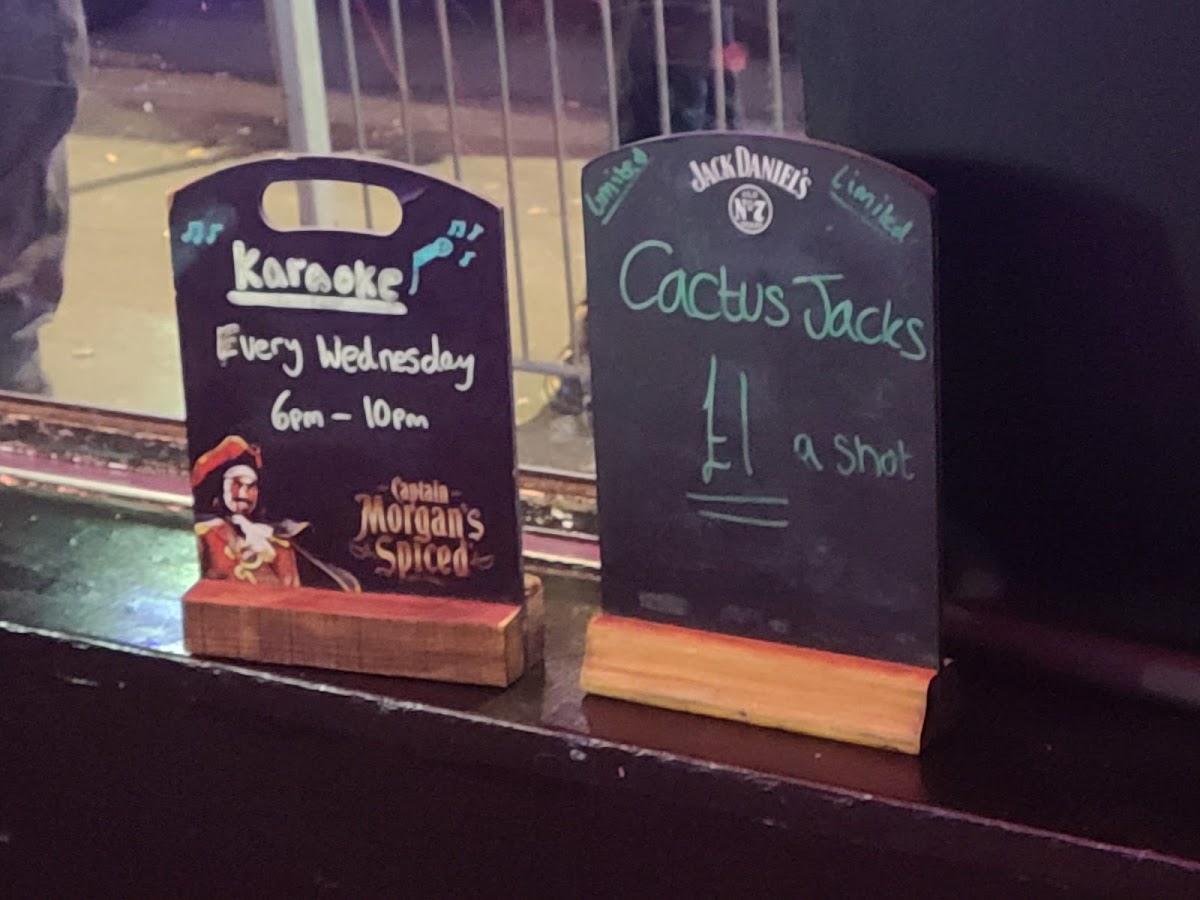 Karaoke
Every Wednesday
6pm - 10pm
Captain
Morgan's
Spiced
Limited
Limited
JACK DANIEL'S
OLD
Nº7
Cactus Jacks
£1 a shot